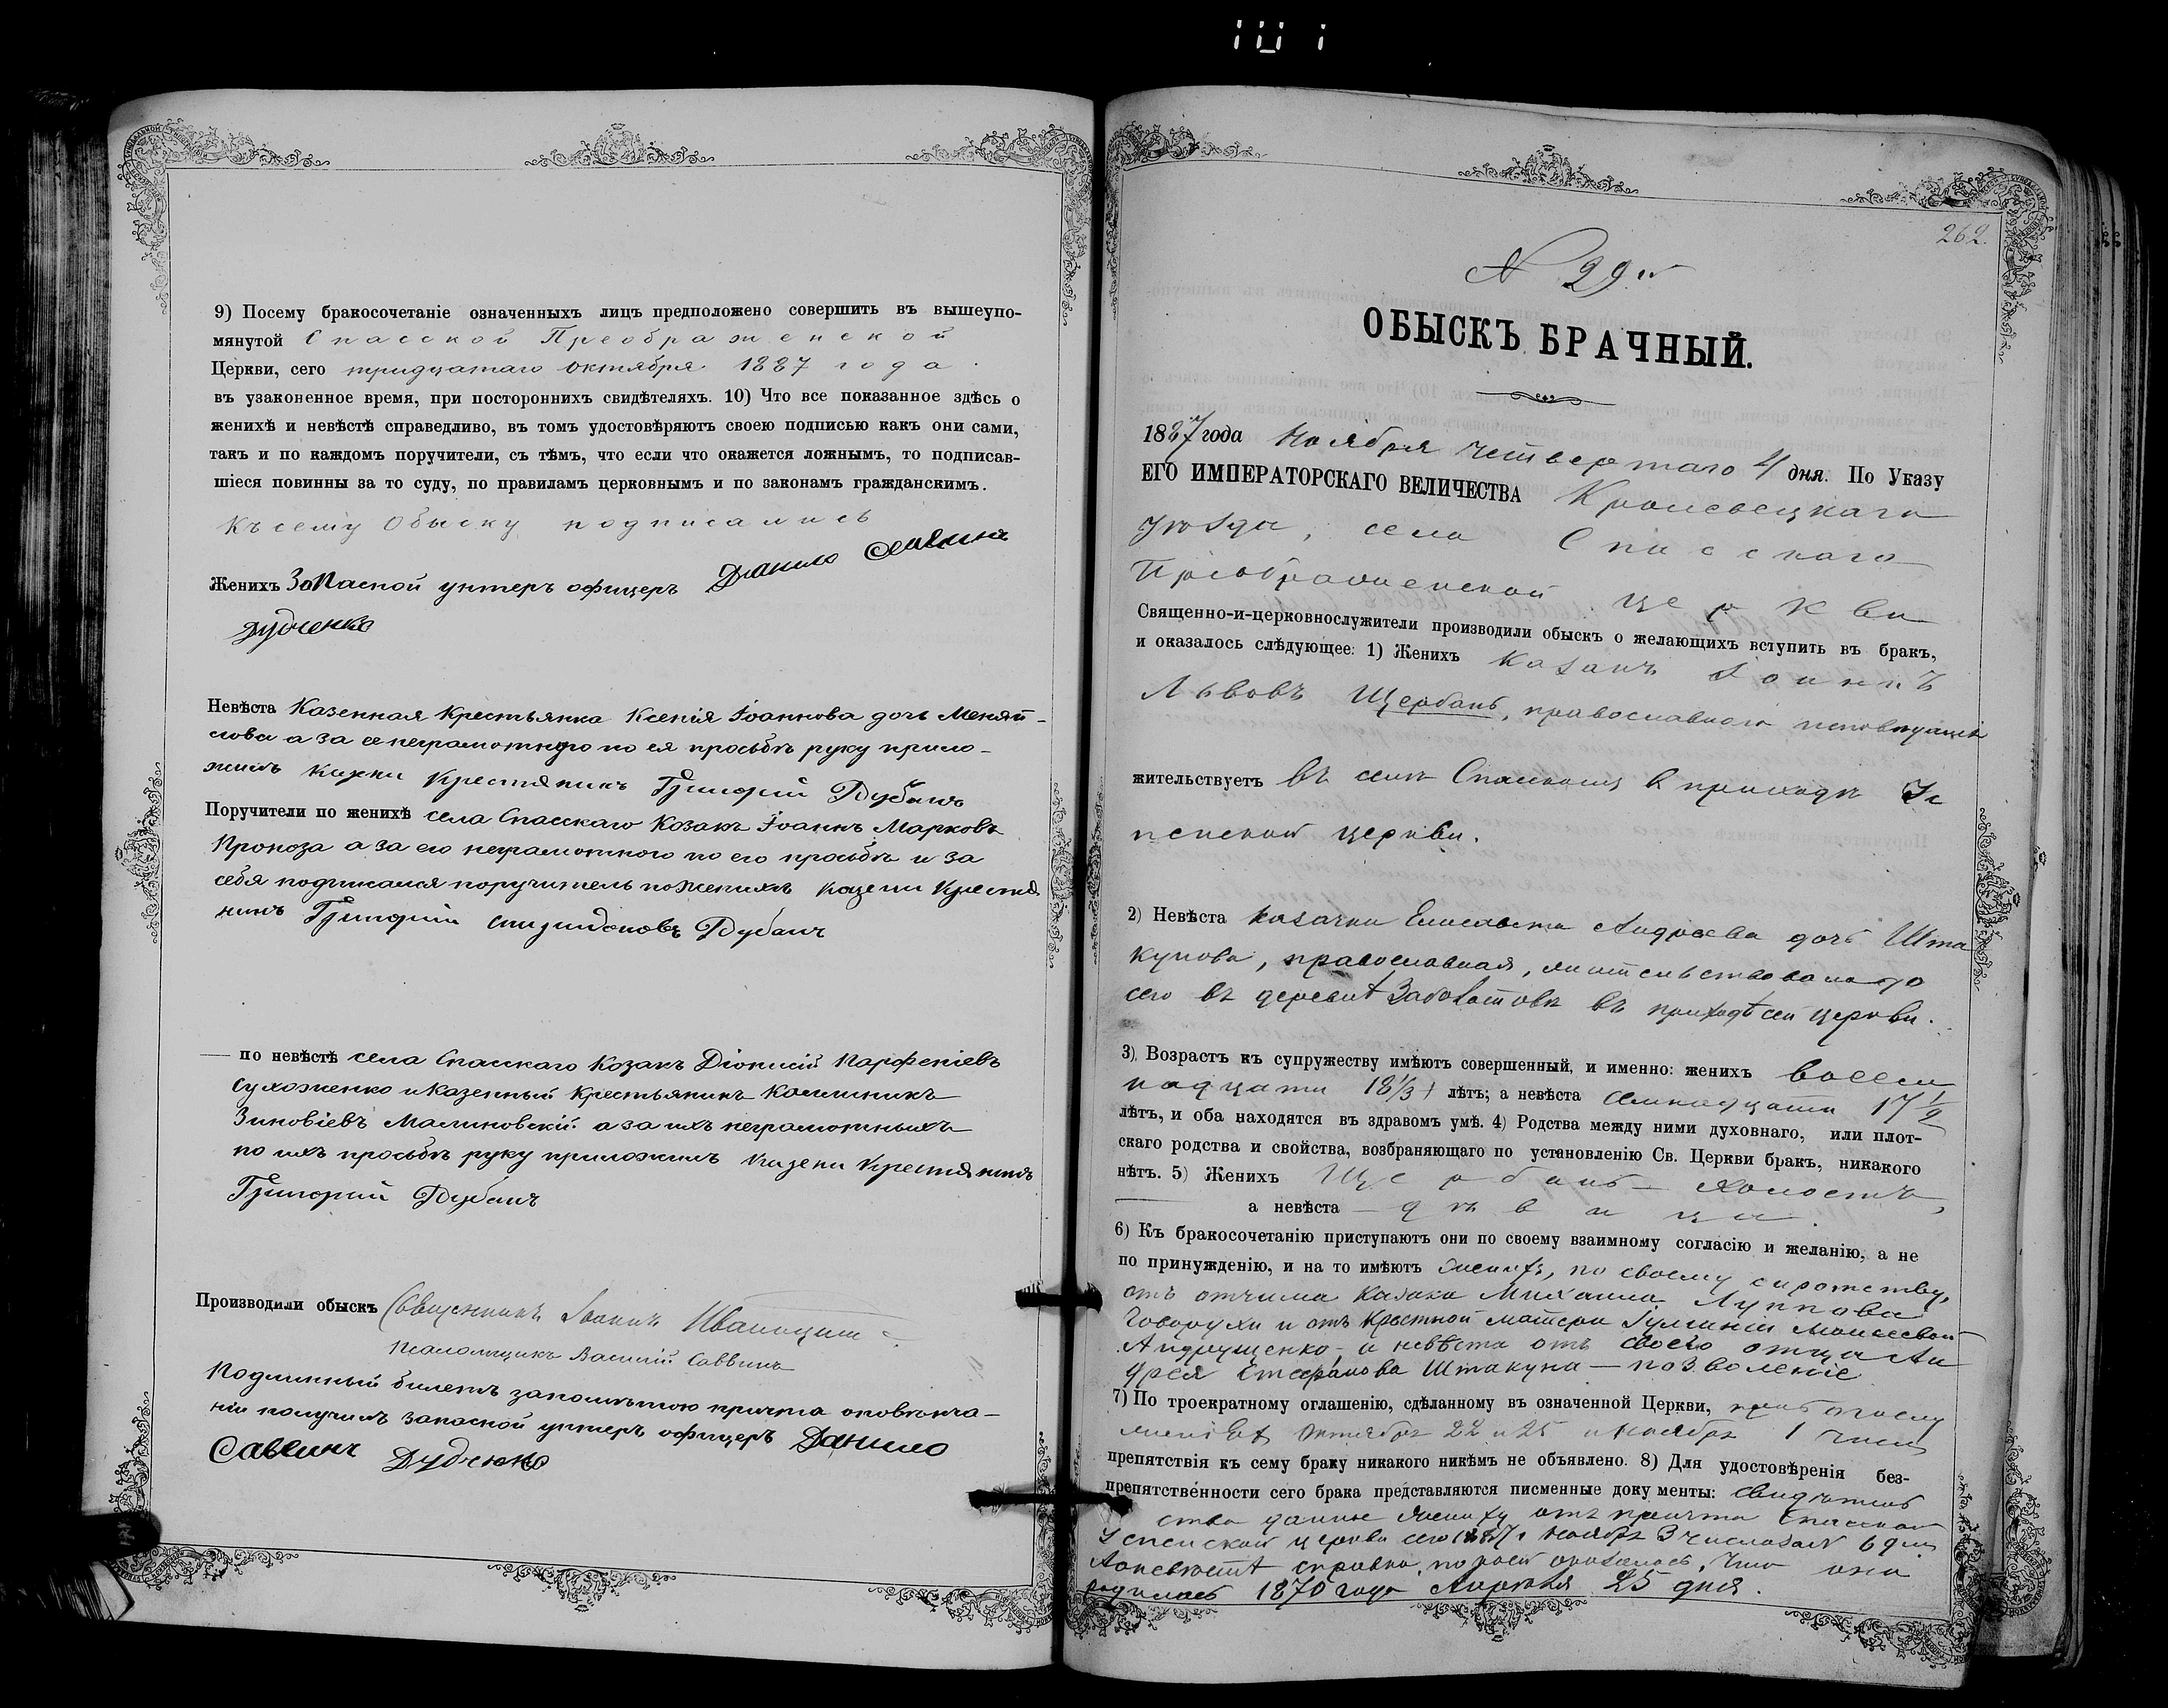 9) Посему бракосочетаніе означенныхъ лицъ предположено совершить въ вышеупо-
мянутой Спасской Преображенской
Церкви, сего тридцатаго октября 1887 года
въ узаконенное время, при постороннихъ свидѣтеляхъ. 10) Что все показанное здѣсь о
женихѣ и невѣстѣ справедливо, въ томъ удостовѣряютъ своею подписью какъ они сами,
такъ и по каждомъ поручители, съ тѣмъ, что если что окажется ложнымъ, то подписав-
шіеся повинны за то суду, по правиламъ церковнымъ и по законамъ гражданскимъ.
Къ сему Обыску подписались
Женихъ Запасной унтеръ офицеръ Данило Саввинъ
Дудченко
Невѣста Казенная Крестьянка Ксенія Іоаннова дочь Меняй-
лова а за ее неграмотную по ея просьбѣ руку прило-
жилъ Казени Крестянинъ Григорій Дубанъ
Поручители по женихѣ села Спасскаго Козакъ Іоаннъ Марковъ
Проноза а за его неграмотного по его просьбѣ и за
себя подписался поручитель по Женихѣ Казени Крестя
нинъ Григорій Спиридоновъ Дубанъ
— по невѣстѣ села Спасскаго Козакъ Діонисій Парфеніевъ
Сухоженко и Казенный Крестьянинъ Каллиникъ
Зиновіевъ Малиновскій а за ихъ неграмотныхъ
по ихъ просьбѣ руку приложилъ Казени Крестянинъ
Григорій Дубанъ
Производили обыскъ Священникъ Іоаннъ
Псаломщикъ Василій Саввинъ
Подлинный билетъ за помѣтою причта о повѣнча-
ніи получилъ запасной унтеръ офицеръ Данило
Саввинъ Дудченко
262.
N 29.й
ОБЫСКЪ БРАЧНЫЙ.
1887 года Ноября Четвертаго 4 дня. По Указу
ЕГО ИМПЕРАТОРСКАГО ВЕЛИЧЕСТВА Кролевецкаго
уѣзда, села Спасскаго
Преображенской церкви
Священно-и-церковнослужители производили обыскъ о желающихъ вступить въ бракъ,
и оказалось слѣдующее: 1) Женихъ Казакъ Іоаннъ
Львовъ Щербань, православнаго исповѣданія
жительствуетъ въ селѣ Спасскомъ въ приходѣ Ус
пенской церкви.
2) Невѣста казачка Елисавета Андреева дочь Шта
кунова, православная, жительствовала до
сего въ деревнѣ въ приходѣ сей церкви.
3) Возрастъ къ супружеству имѣютъ совершенный, и именно: женихъ восем
надцати 18 1/3 лѣтъ; а невѣста семнадцати 17 1/2
лѣтъ, и оба находятся въ здравомъ умѣ. 4) Родства между ними духовнаго, или плот-
скаго родства и свойства, возбраняющаго по установленію Св. Церкви бракъ, никакого
нѣтъ. 5) Женихъ Щербань — холостъ,
а невѣста — дѣвица.
6) Къ бракосочетанію приступаютъ они по своему взаимному согласію и желанію, а не
по принужденію, и на то имѣютъ женихъ, по своему сиротству,
отъ отчима Казака Михаила Луппова
Говорухи и отъ крестной матери Іуліаніи Моисеевой
Андрущенко, а невѣста отъ своего отца Ан
дрея Стефанова Штакуна — позволеніе
7) По троекратному оглашенію, сдѣланному въ означенной Церкви,
Октября 22 и 25 и Ноября 1 числъ
препятствія къ сему браку никакого никѣмъ не объявлено. 8) Для удостовѣренія без-
препятственности сего брака представляются писменные доку менты: свидѣтель
ства данное жениху отъ причта Спасской
Успенской церкви сего 1887 г. Ноября 3 числа за № 69
справка, по коей оказалось, что она
родилась 1870 года Апрѣля 25 дня.